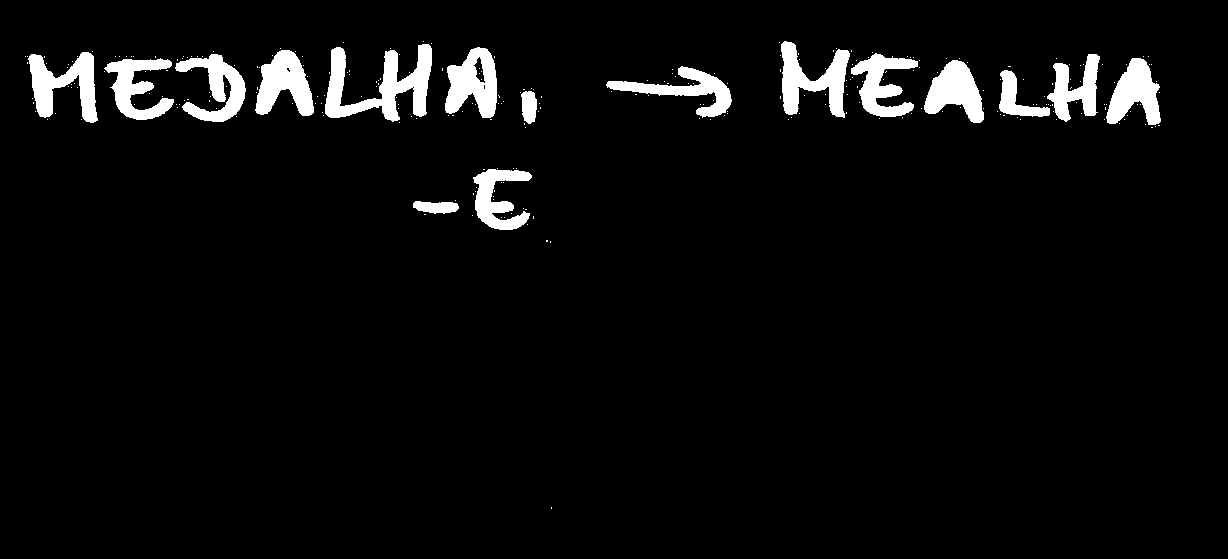 MEDALHA, → MEALHA
-E